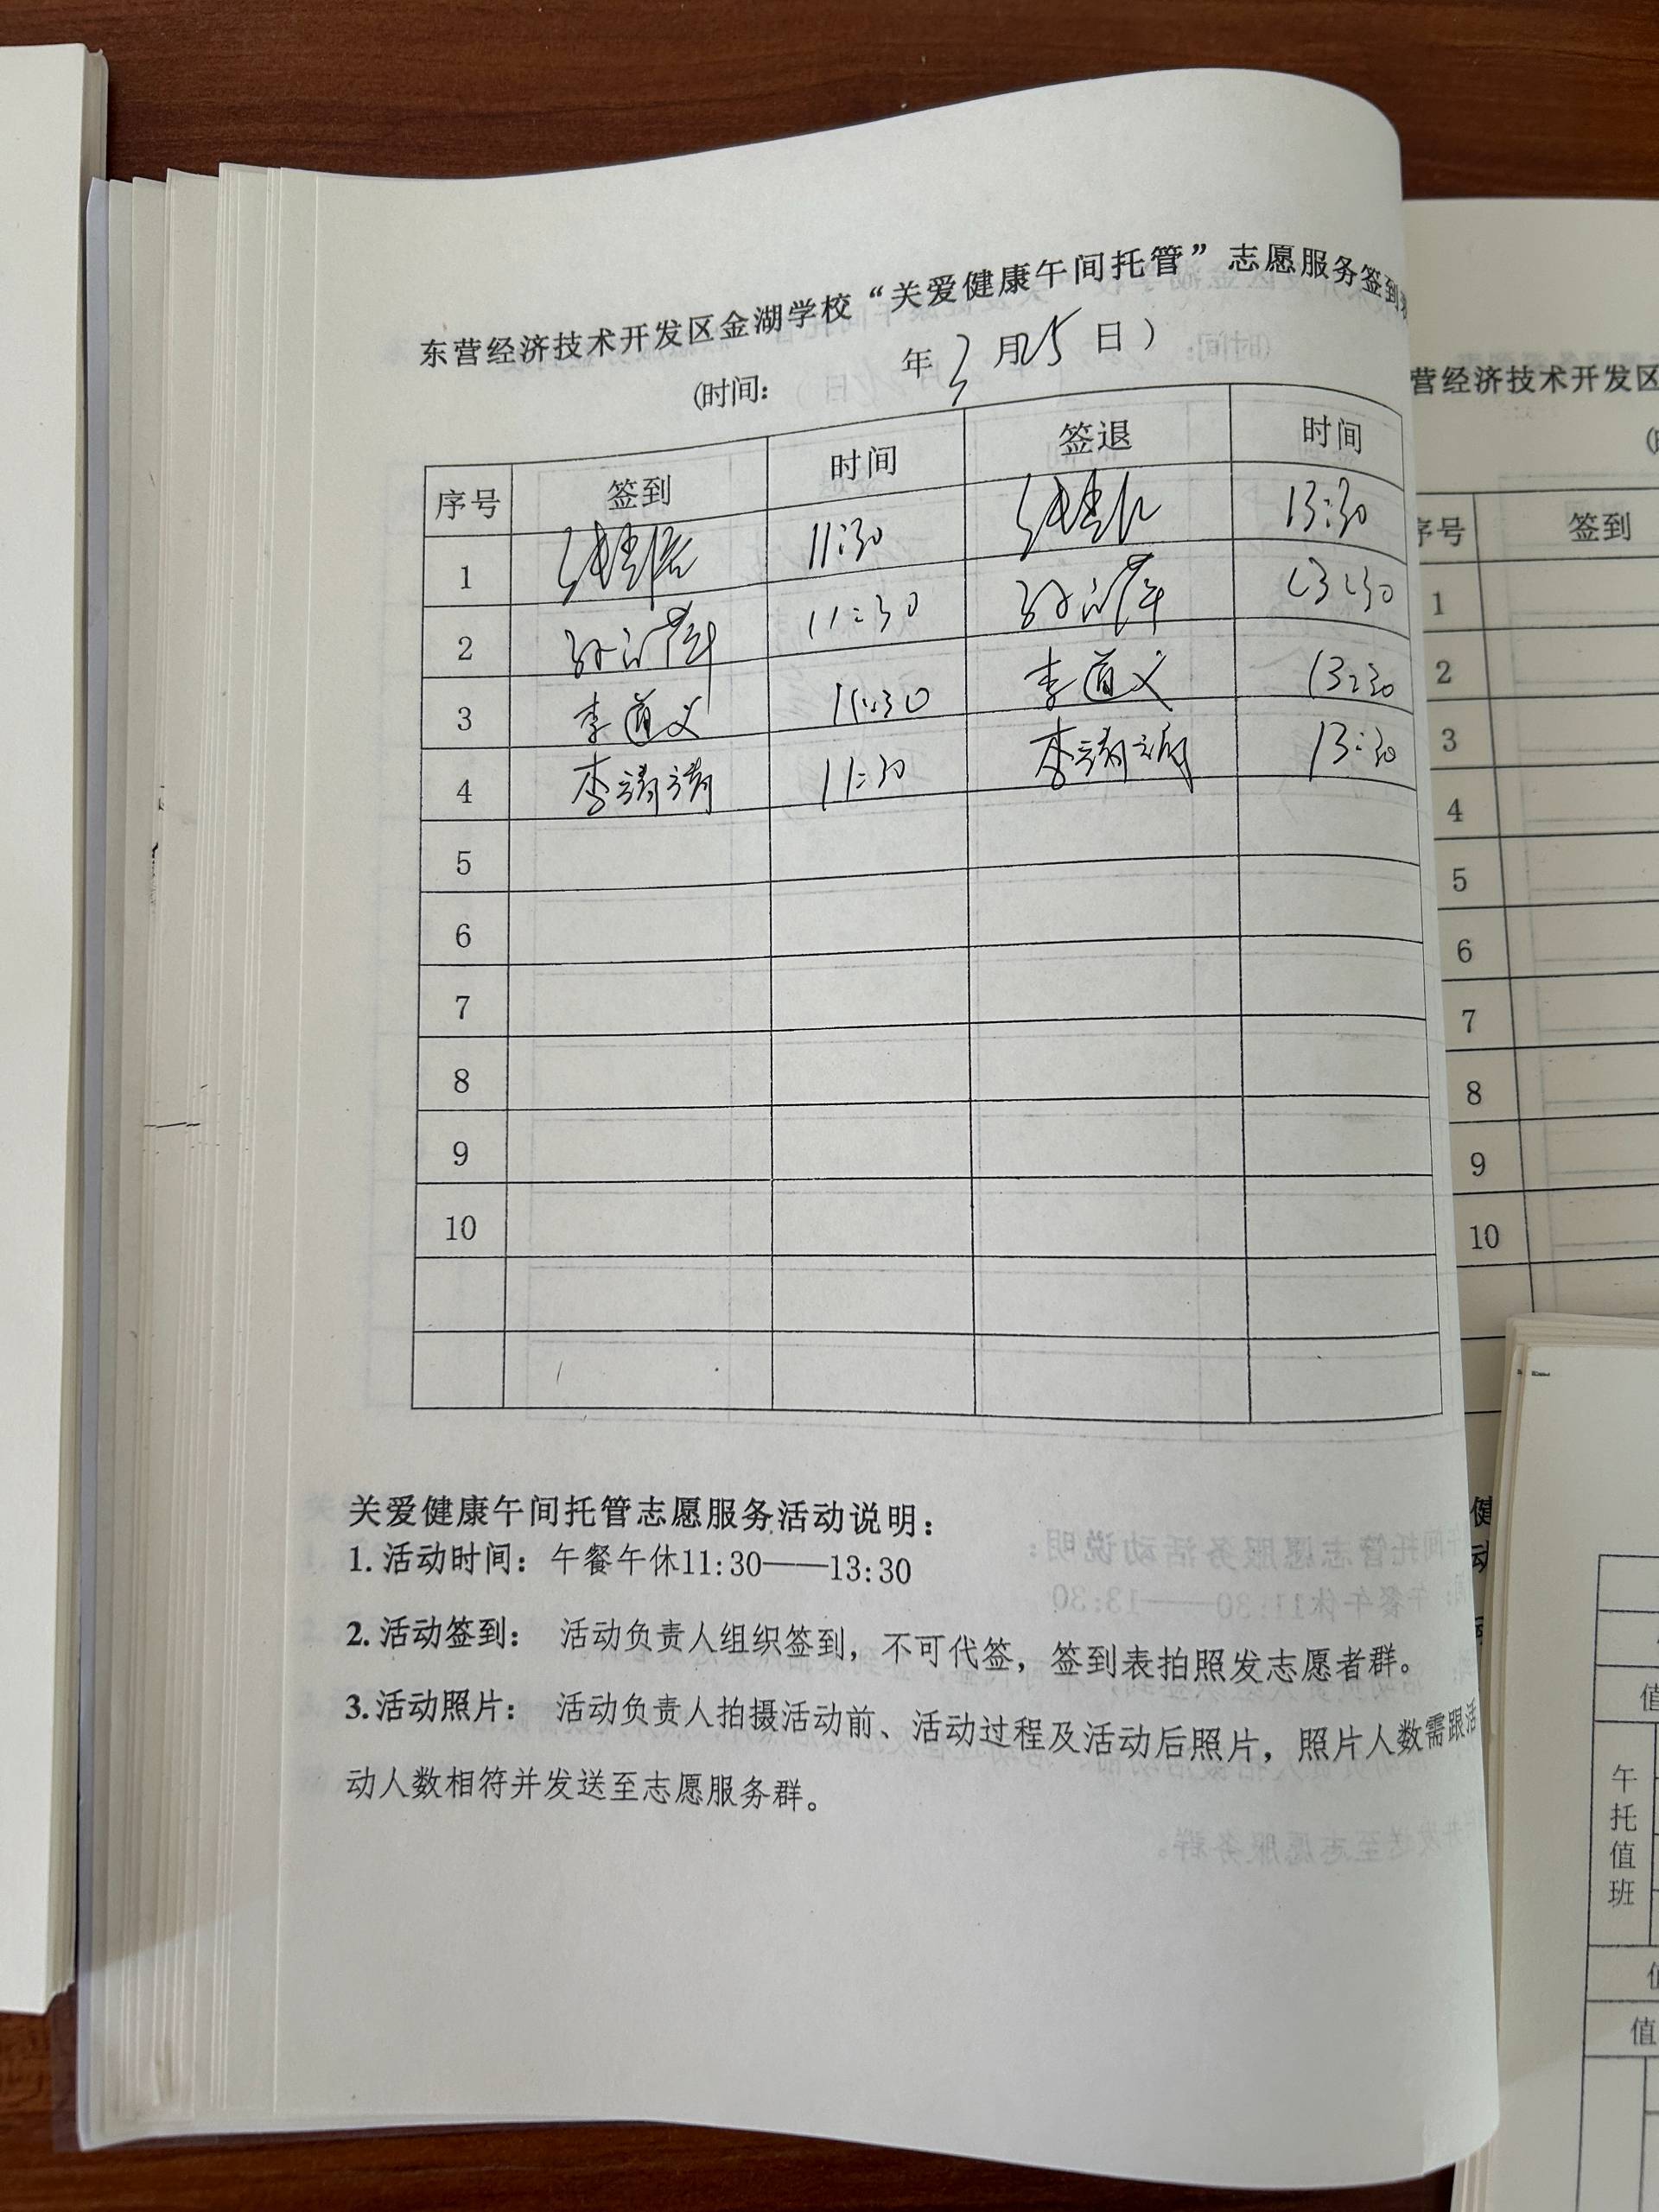 东营经济技术开发区金湖学校“关爱健康午间托管”志愿服务签到表
(时间: 年3月25日)
序号 签到 时间 签退 时间
1 11:30 13:30
2 11:30 13:30
3 李道义 11:30 李道义 13:30
4 李靖靖 11:30 李靖靖 13:30
5
6
7
8
9
10
关爱健康午间托管志愿服务活动说明:
1.活动时间: 午餐午休11:30——13:30
2.活动签到: 活动负责人组织签到,不可代签,签到表拍照发志愿者群。
3.活动照片: 活动负责人拍摄活动前、活动过程及活动后照片,照片人数需跟活
动人数相符并发送至志愿服务群。
营经济技术开发区
序号 签到
1
2
3
4
5
6
7
8
9
10
午托值班